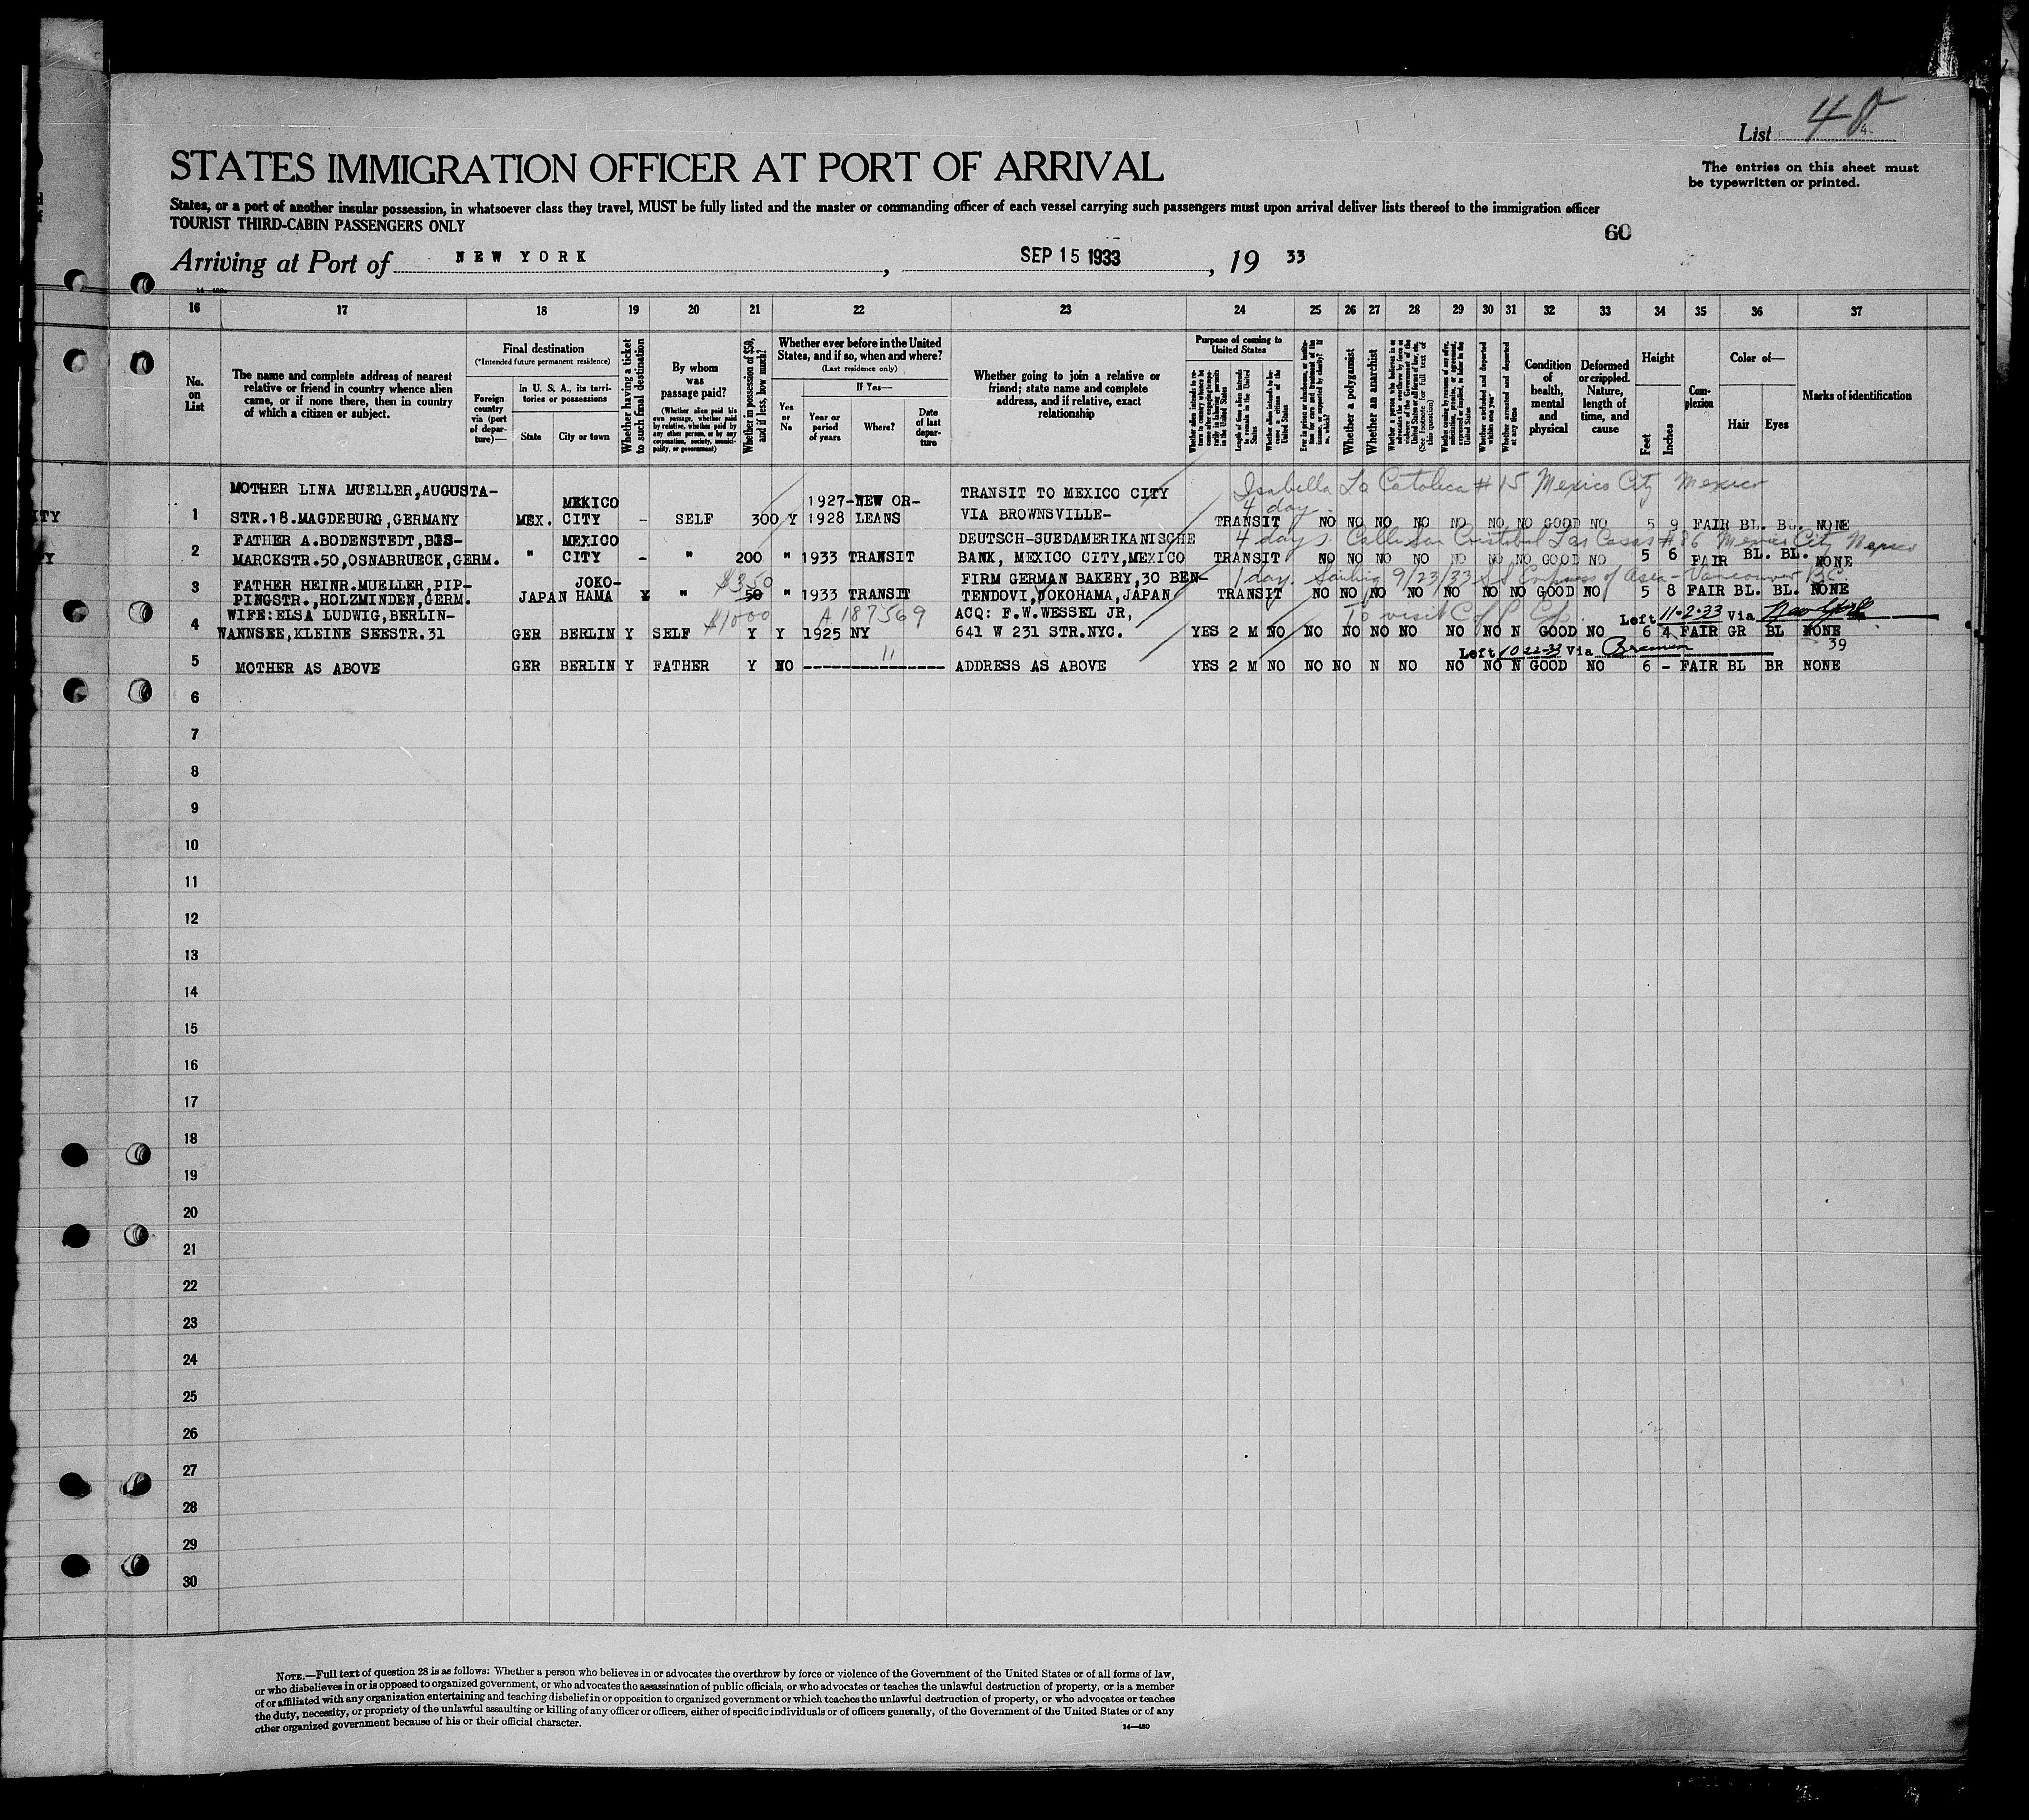 List 48
STATES IMMIGRATION OFFICER AT PORT OF ARRIVAL
The entries on this sheet must
be typewritten or printed.
States, or a port of another insular possession, in whatsoever class they travel, MUST be fully listed and the master or commanding officer of each vessel carrying such passengers must upon arrival deliver lists thereof to the immigration officer
TOURIST THIRD-CABIN PASSENGERS ONLY
60
Arriving at Port of NEW YORK, SEP 15 1933, 19 33
16 17 18 19 20 21 22 23 24 25 26 27 28 29 30 31 32 33 34 35 36 37
No.
on
List
The name and complete address of nearest
relative or friend in country whence alien
came, or if none there, then in country
of which a citizen or subject.
Final destination
(*Intended future permanent residence)
Foreign
country
via (port
of depar-
ture)—
In U. S. A., its terri-
tories or possessions
State
City or town
Whether having a ticket
to such final destination
By whom
was
passage paid?
(Whether alien paid his
own passage, whether paid
by relative, whether paid by
any other person, or by any
corporation, society, munici-
pality, or government)
Whether in possession of $50,
and if less, how much?
Whether ever before in the United
States, and if so, when and where?
(Last residence only)
Yes
or
No
If Yes—
Year or
period
of years
Where?
Date
of last
depar-
ture
Whether going to join a relative or
friend; state name and complete
address, and if relative, exact
relationship
Purpose of coming to
United States
Whether alien intends to re-
turn to country whence he
came after engaging tempo-
rarily in laboring pursuits
in the United States
Length of time alien intends
to remain in the United
States
Whether alien intends to be-
come a citizen of the
United States
Ever in prison or almshouse, or institu-
tion for care and treatment of the
insane, or supported by charity? If
so, which?
Whether a polygamist
Whether an anarchist
Whether a person who believes in or
advocates the overthrow by force or
violence of the Government of the
United States or all forms of law, etc.
(See footnote for full text of
this question)
Whether coming by reason of any offer,
solicitation, promise, or agreement,
expressed or implied, to labor in the
United States
Whether excluded and deported
within one year
Whether arrested and deported
at any time
Condition
of
health,
mental
and
physical
Deformed
or crippled.
Nature,
length of
time, and
cause
Height
Feet
Inches
Com-
plexion
Color of—
Hair
Eyes
Marks of identification
MOTHER LINA MUELLER,AUGUSTA- MEXICO 1927-NEW OR- TRANSIT TO MEXICO CITY Isabella La Catolica # 15 Mexico City Mexico
4 day
1 STR.18.MAGDEBURG,GERMANY MEX. CITY - SELF 300 Y 1928 LEANS VIA BROWNSVILLE- TRANSIT NO NO NO NO NO NO NO GOOD NO 5 9 FAIR BL. BL. NONE
FATHER A.BODENSTEDT,BIS- MEXICO DEUTSCH-SUEDAMERIKANISCHE 4 days. Calle San Cristobal Las Casas # 86 Mexico City Mexico
2 MARCKSTR.50,OSNABRUECK,GERM. " CITY - " 200 " 1933 TRANSIT BANK, MEXICO CITY,MEXICO TRANSIT NO NO NO NO NO NO NO GOOD NO 5 6 FAIR BL. BL. NONE
FATHER HEINR.MUELLER,PIP- JOKO- $350 FIRM GERMAN BAKERY,30 BEN- 1 day. Sailing 9/23/33 SS Empress of Asia - Vancouver B.C.
3 PINGSTR.,HOLZMINDEN,GERM. JAPAN HAMA Y " 50 " 1933 TRANSIT TENDOVI,YOKOHAMA,JAPAN TRANSIT NO NO NO NO NO NO NO GOOD NO 5 8 FAIR BL. BL. NONE
WIFE:ELSA LUDWIG,BERLIN- $1000 A 187569 ACQ: F.W.WESSEL JR, To visit Left 11-2-33 Via New York
4 WANNSEE,KLEINE SEESTR.31 GER BERLIN Y SELF Y Y 1925 NY 641 W 231 STR.NYC. YES 2 M NO NO NO NO NO NO NO N GOOD NO 6 4 FAIR GR BL NONE
11 Left 10-22-33 Via Bremen 39
5 MOTHER AS ABOVE GER BERLIN Y FATHER Y NO ADDRESS AS ABOVE YES 2 M NO NO NO N NO NO NO N GOOD NO 6 - FAIR BL BR NONE
6
7
8
9
10
11
12
13
14
15
16
17
18
19
20
21
22
23
24
25
26
27
28
29
30
NOTE.—Full text of question 28 is as follows: Whether a person who believes in or advocates the overthrow by force or violence of the Government of the United States or of all forms of law,
or who disbelieves in or is opposed to organized government, or who advocates the assassination of public officials, or who advocates or teaches the unlawful destruction of property, or is a member
of or affiliated with any organization entertaining and teaching disbelief in or opposition to organized government or which teaches the unlawful destruction of property, or who advocates or teaches
the duty, necessity, or propriety of the unlawful assaulting or killing of any officer or officers, either of specific individuals or of officers generally, of the Government of the United States or of any
other organized government because of his or their official character.
14—480